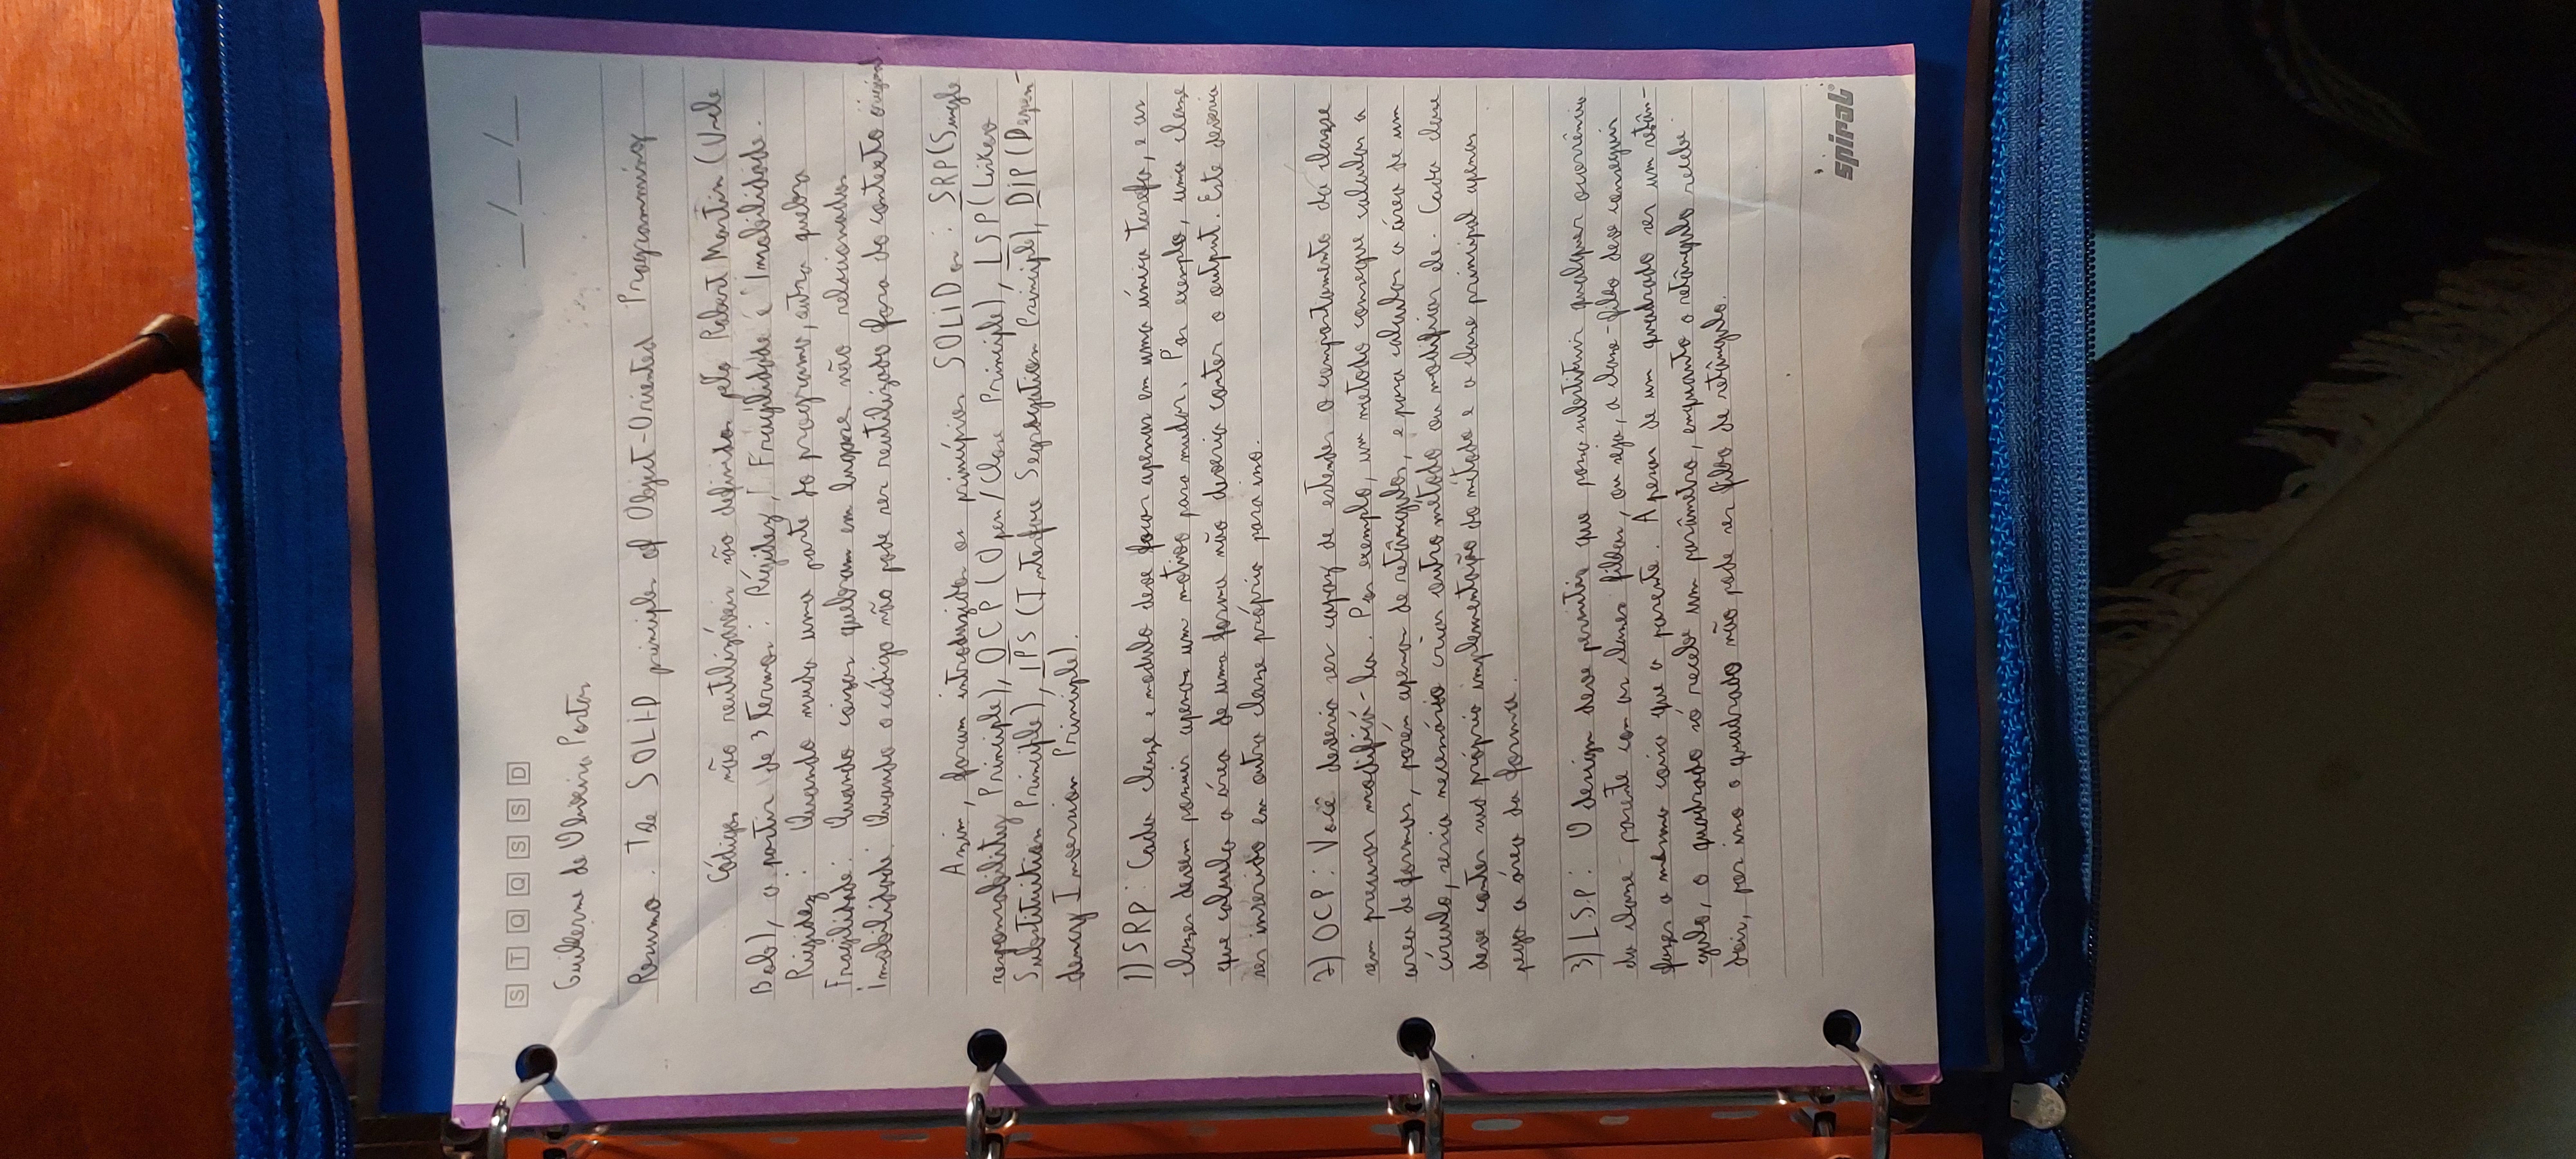 S T Q Q S S D
__/__/__
Guilherme de Oliveira Portes
Resumo. The SOLID principles of Object-Oriented Programming
Códigos não reutilizáveis são definidos pelo Robert Martin (Uncle
Bob), a partir de 3 termos: Rigidez, Fragilidade e Imobilidade.
Rigidez: Quando muda uma parte do programa, outra quebra
Fragilidade: Quando coisas quebram em lugares não relacionados
Imobilidade: Quando o código não pode ser reutilizado fora do contexto original.
Assim, foram introduzidos os princípios SOLID os: SRP (Single
responsability Principle), OCP (Open/Close Principle), LSP (Liskov
Substituition Principle), IPS (Interface Segregation Principle), DIP (Depen-
dency Inversion Principle).
1) SRP: Cada classe e modulo deve focar apenas em uma única tarefa, e as
classes devem possuir apenas um motivo para mudar. Por exemplo, uma classe
que calcula a área de uma forma não deveria conter o output. Este deveria
ser inserido em outra classe própria para isso.
2) OCP: Você deveria ser capaz de estender o comportamento da classe
sem precisar modificá-la. Por exemplo, um metodo consegue calcular a
area de formas, porém apenas de retângulos, e para calcular a área de um
círculo, seria necessário criar outro método ou modificar ele. Cada classe
deve conter sua própria implementação do método e a classe principal apenas
pega a área da forma.
3) LSP: O design deve permitir que possa substituir qualquer ocorrência
da classe-parente com as classes filhas, ou seja, a classe-filha deve conseguir
fazer a mesma coisa que a parente. Apesar de um quadrado ser um retân-
gulo, o quadrado só recebe um parâmetro, enquanto o retângulo recebe
dois, por isso o quadrado não pode ser filho de retângulo.
spiral